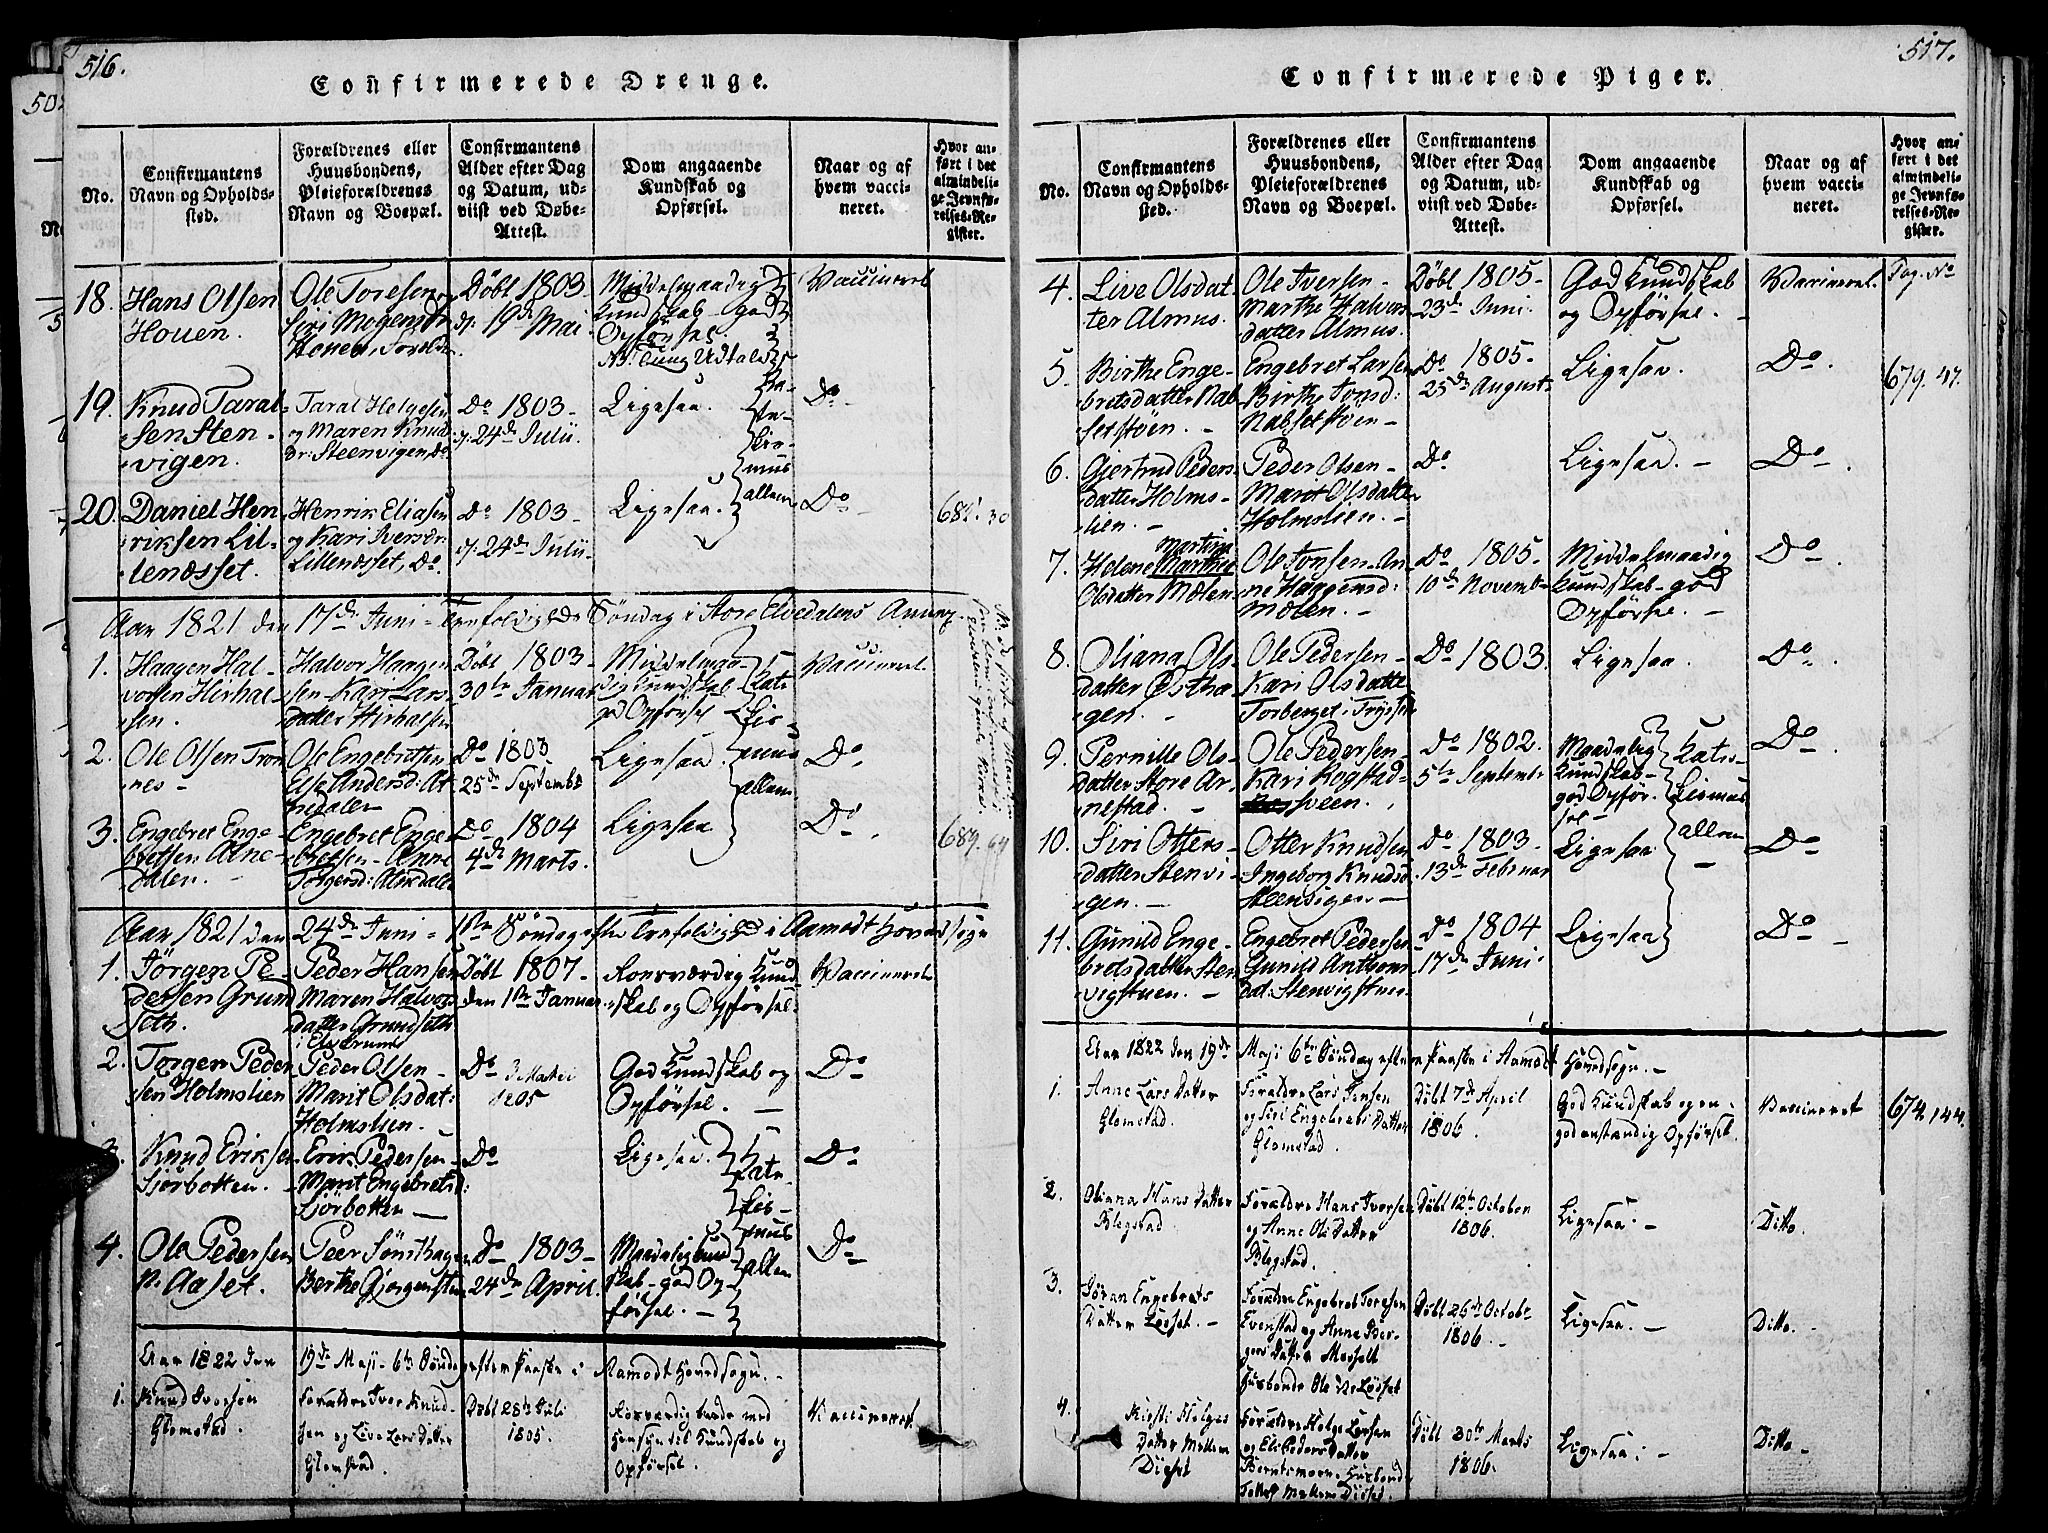 516.
Confirmerede Drenge.
No.
Confirmantens
Navn og Opholds-
sted.
Forældrenes eller
Huusbondens,
Pleieforældrenes
Navn og Boepæl.
Confirmantens
Alder efter Dag
og Datum, ud-
viist ved Døbe-
Attest.
Dom angaaende
Kundskab og
Opførsel.
Naar og af
hvem vacci-
neret.
Hvor an-
ført i det
almindeli-
ge Jevnfø-
relses-Re-
gister.
18.
Hans Olsen
Houen.
Ole Toresen
Siri Mogensdr
Døbt 1803
d: 19de Mai
Middelmaadig
Kundskab god
Opførsel
Vaccineret
19.
Knud Taral-
sen Sten-
vigen.
Taral Helgesen
og Maren Knuds
dr: Steenvigen, Do
Do 1803-
d: 24de Julii.
Ligesaa.
Do
20.
Daniel Hen-
riksen Lil-
lenæsset.
Henrik Eliasen
og Kari Iversdr
Lillenæsset, Do.
Do 1803-
d: 24de Julii-
Ligesaa.
allene
Do
Aar 1821 den 17de Juni - Trefoldigheds Søndag i Store Elvedalens Annex.
1.
Haagen Hal-
vorsen Hirhal-
sen.
Halvor Haagen
sen Kari Lars
datter Hirhalsen
Døbt 1803
30te Januar
Middelmaa-
dig Kundskab
god Opførsel
Vaccineret
2.
Ole Olsen Trøn
nes -
Ole Engebretsen
Else Andersd: At
Do 1803
25de Septembr
Ligesaa.
allene
Do.
3.
Engebret Enge
bretsen Alme
dalen.
Engebret Enge
bretsen - Anne
Do 1804
4de Marts.
Ligesaa
Do.
689. 64
Aar 1821 den 24de Juni - 1ste Søndag efter Trefoldighed i Aamodt Hovedsogn
1.
Jørgen Pe-
dersen Grund
seth.
Peder Hansen
Maren Halvors
datter Grundseth
i Elverum
Døbt 1807.
den 1ste Januar.
Roesværdig Kund
skab og Opførsel.
Vaccineret
2.
Torgen Peder
sen Holmslien
Peder Olsen -
Marit Olsdat:
Holmslien. -
Do
1805
God Kundskab og
Opførsel. -
Do
3.
Knud Eriksen
Siørbotten.
Erik Pedersen -
Marit Engebretsd:
Siørbotten -
Do
Ligesaa.
Do
4.
Ole Pedersen
N. Aaset.
Peer Sønsthagen
Do 1803-
24de April.
Maadelig Kund
skab - god Op-
førsel. -
allene
Do
Aar 1822 den 19de Maji - 6te Søndag efter Paaske i Aamodt Hovedsogn. -
1.
Knud Iversen
Glomstad.
Forældre Iver Knud-
sen og Live Lars Datter
Glomstad.
Døbt 28de Juli
1805.
Hensyn til Kundskab og
Opførsel.
Vaccineret.
517.
Confirmerede Piger.
No.
Confirmantens
Navn og Opholds-
sted.
Forældrenes eller
Huusbondens,
Pleieforældrenes
Navn og Boepæl.
Confirmantens
Alder efter Dag
og Datum, ud-
viist ved Døbe-
Attest.
Dom angaaende
Kundskab og
Opførsel.
Naar og af
hvem vacci-
neret.
Hvor an-
ført i det
almindeli-
ge Jevnfø-
relses-Re-
gister.
Pag. No
4.
Live Olsdat-
ter Almus.
Ole Iversen
Marthe Halvors
datter Almus.
Døbt 1805-
23de Juni.
God Kundskab
og Opførsel. -
Vaccineret.
5.
Birthe Enge-
bretsdatter Nab-
setstøen. -
Engebret Larsen
Birthe Tonsd:
Nabsetstøen -
Do 1805-
25de August
Ligesaa.
Do.
679. 47.
6.
Gjertrud Peders
datter Holms-
lien. -
Peder Olsen -
Marit Olsdatter
Holmslien. -
Do
Ligesaa. -
Do.
7.
Helene Martine
Marthea
Olsdatter Mælen
Ole Tonsen - An-
ne Haagensd:
Mælen. -
Do 1805.
10de Novembr
Middelmaadig
Kundskab - god
Opførsel. -
Do
8.
Oliana Ols-
datter Østha-
gen. -
Ole Pedersen -
Kari Olsdatter
Torberget i Trysil
Do 1803.
Ligesaa.
Do.
9.
Pernille Ols-
datter Store Ar-
nestad.
Ole Pedersen
Kari Rogstad-
sveen.
Do 1802.
5te Septembr
Maadelig
Kundskab-
god Opfør-
sel -
Do.
10.
Siri Otters-
datter Stenvi-
gen. -
Otter Knudsen
Ingeborg Knudsd.
Steenvigen -
Do 1803-
13de Februar
Ligesaa
allene
Do
11.
Gunild Enge-
bretsdatter Sten
vigstuen. -
Engebret Pedersen
Do 1804
17de Juni
Ligesaa
Do -
Aar 1822 den 19de Maji 6te Søndag efter Paaske i Aamodt Hovedsogn. -
1.
Anne Lars Datter
Glomstad.
Forældre Lars Jensen
og Siri Engebrets Datter
Glomstad.
Døbt 7de April
1806.
God Kundskab og en
god anstændig Opførsel.
Vaccineret
674. 144.
2.
Oliana Hans Datter
Blegstad.
Forældre Hans Iversen
og Anne Ols Datter
Blegstad.
Døbt 12te October
1806.
Ligesaa. -
Ditto.
3.
Jøran Engebrets
Datter Løset. -
Forældre Engebret Toresen
Evenstad og Anne Ber-
gers Datter
Husbonde Ole
Døbt 26de Octobr
1806.
Ligesaa. -
Ditto.
4.
Kirsti Helges
Datter Mellem
Diset
Forældre Helge Larsen
og Eli Peders Datter
Døbt 30te Marts
1806.
Ligesaa. -
Ditto.